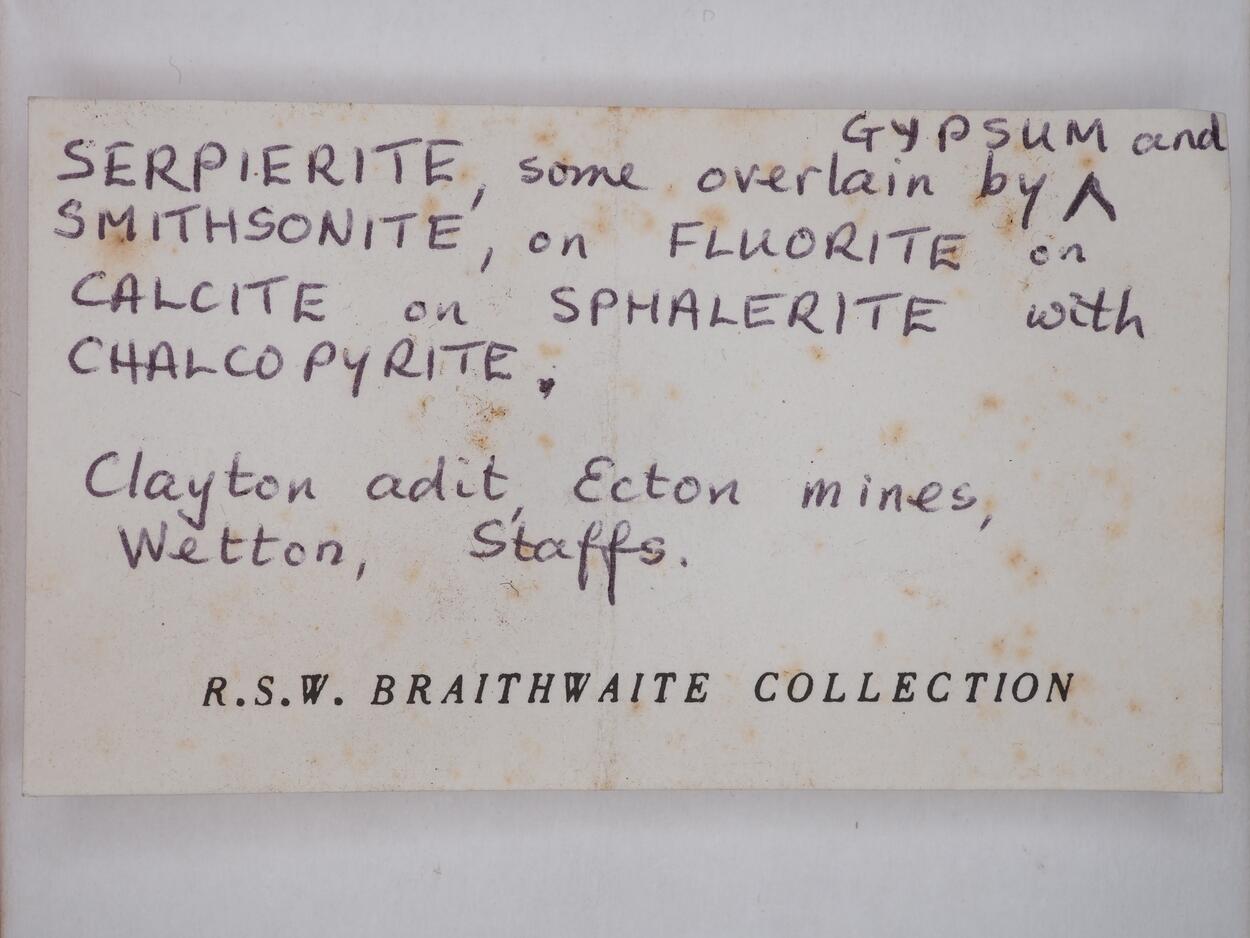 GYPSUM and
SERPIERITE, some overlain by ^
SMITHSONITE, on FLUORITE on
CALCITE on SPHALERITE with
CHALCOPYRITE.
Clayton adit, Ecton mines,
Wetton, Staffs.
R.S.W. BRAITHWAITE COLLECTION